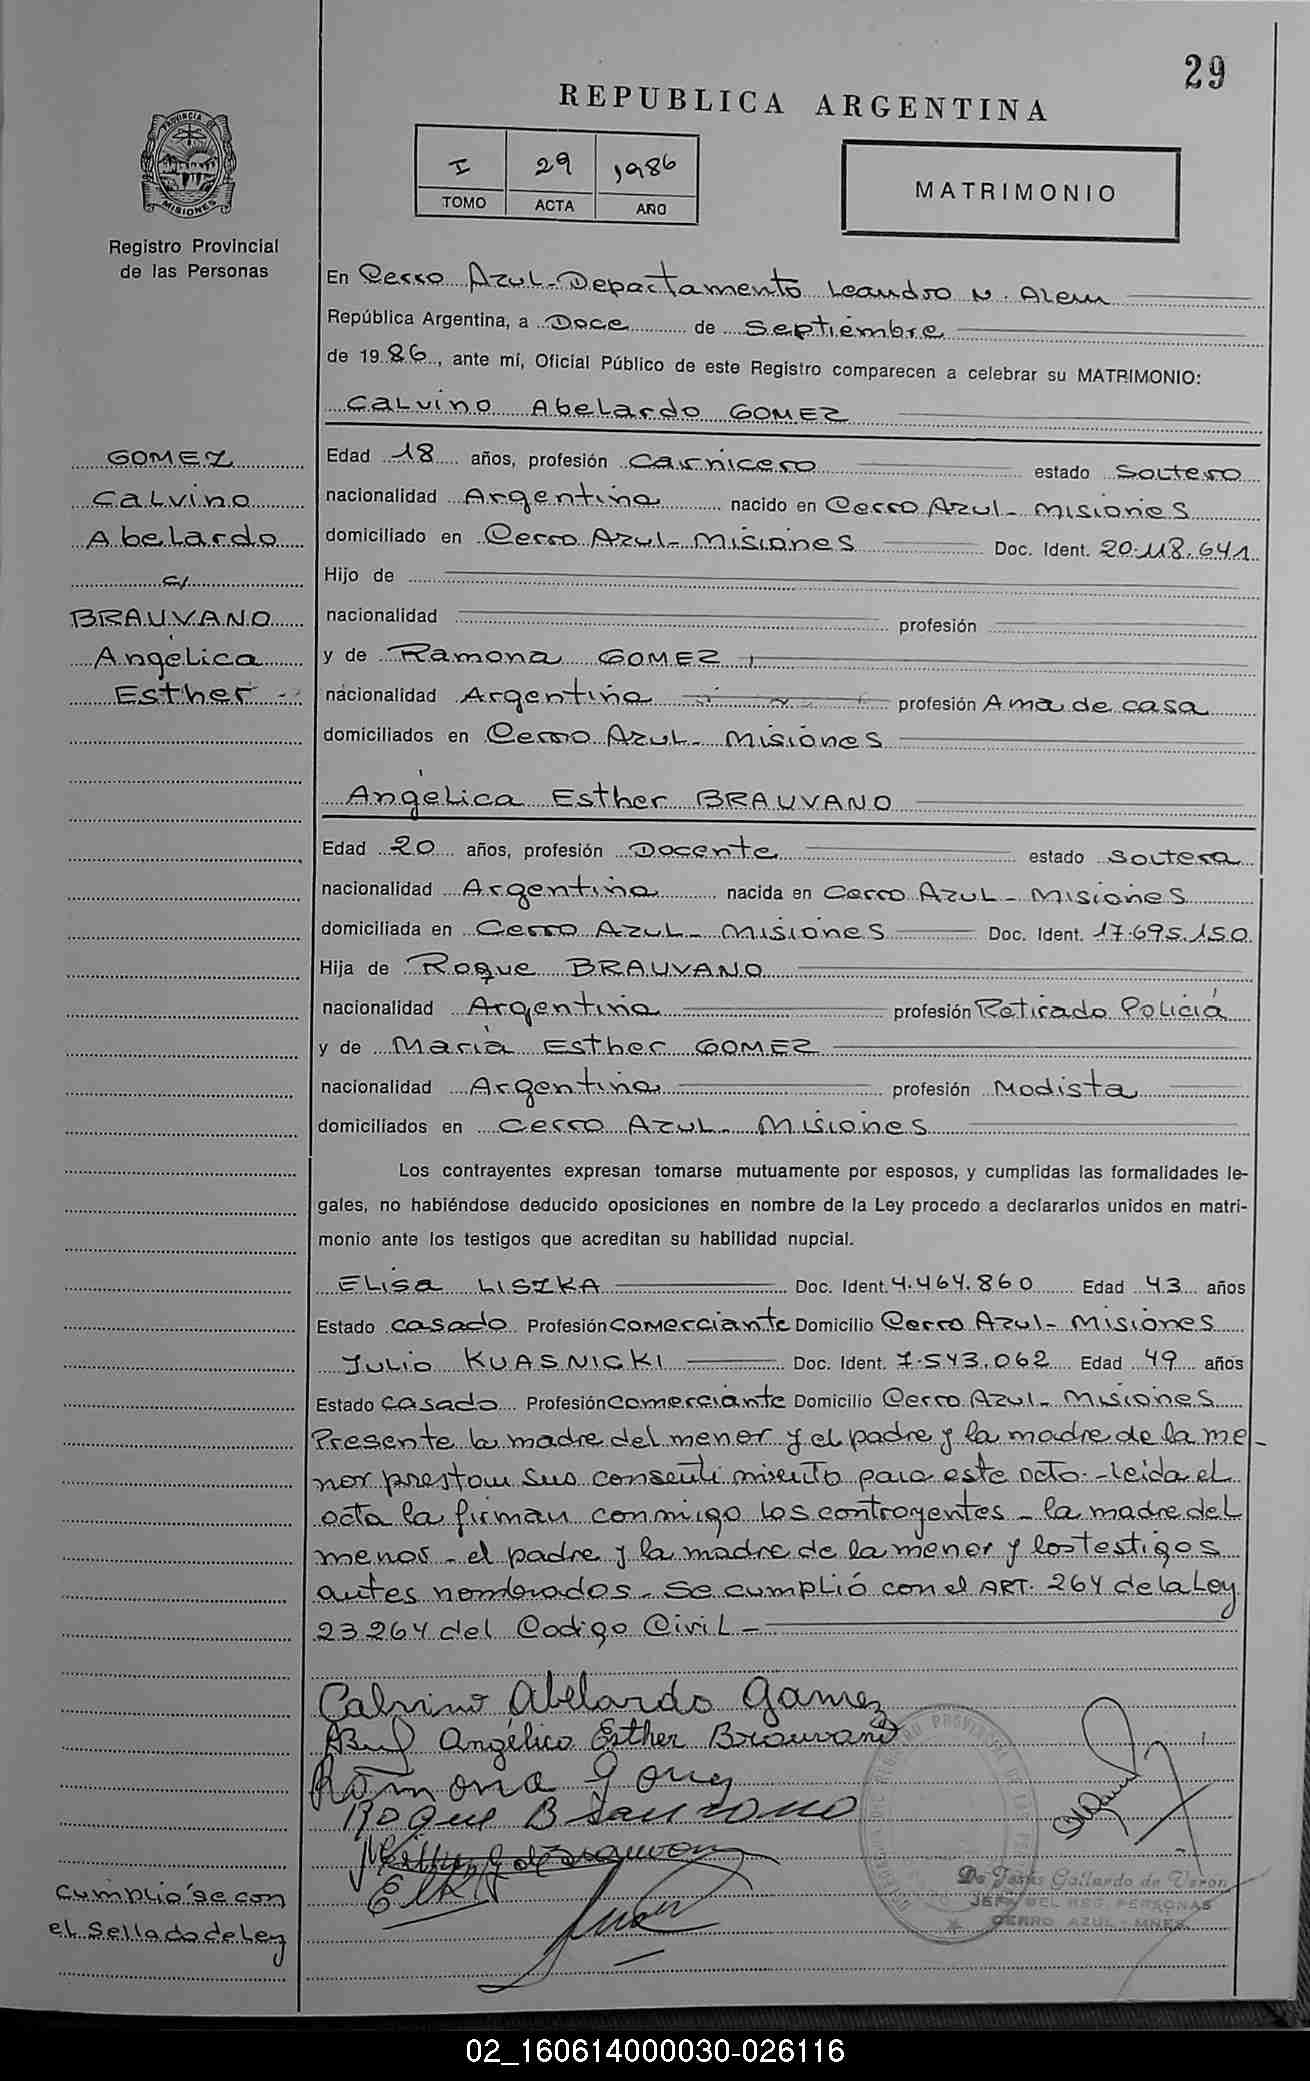 29
REPUBLICA ARGENTINA
I 29 1986
TOMO ACTA AÑO
MATRIMONIO
PROVINCIA DE
MISIONES
Registro Provincial
de las Personas
En Cerro Azul - Departamento Leandro N. Alem
República Argentina, a Doce de Septiembre
de 1986, ante mí, Oficial Público de este Registro comparecen a celebrar su MATRIMONIO:
Calvino Abelardo GOMEZ
GOMEZ
Calvino
Abelardo
c/
BRAUVANO
Angélica
Esther
Edad 18 años, profesión Carnicero estado Soltero
nacionalidad Argentina nacido en Cerro Azul - Misiones
domiciliado en Cerro Azul - Misiones Doc. Ident. 20.118.641
Hijo de
nacionalidad profesión
y de Ramona GOMEZ
nacionalidad Argentina profesión Ama de casa
domiciliados en Cerro Azul - Misiones
Angélica Esther BRAUVANO
Edad 20 años, profesión Docente estado Soltera
nacionalidad Argentina nacida en Cerro Azul - Misiones
domiciliada en Cerro Azul - Misiones Doc. Ident. 17.695.150
Hija de Roque BRAUVANO
nacionalidad Argentina profesión Retirado Policía
y de María Esther GOMEZ
nacionalidad Argentina profesión Modista
domiciliados en Cerro Azul - Misiones
Los contrayentes expresan tomarse mutuamente por esposos, y cumplidas las formalidades le-
gales, no habiéndose deducido oposiciones en nombre de la Ley procedo a declararlos unidos en matri-
monio ante los testigos que acreditan su habilidad nupcial.
Elisa LISZKA Doc. Ident. 4.464.860 Edad 43 años
Estado casado Profesión comerciante Domicilio Cerro Azul - Misiones
Julio KUASNICKI Doc. Ident. 7.543.062 Edad 49 años
Estado casado Profesión comerciante Domicilio Cerro Azul - Misiones
Presente la madre del menor y el padre y la madre de la me-
nor prestan sus consentimiento para este acto - leida el
acta la firman conmigo los contrayentes - la madre del
menor - el padre y la madre de la menor y los testigos
antes nombrados - Se cumplió con el ART. 264 de la Ley
23264 del Codigo Civil -
Calvino Abelardo Gomez
Angélica Esther Brauvano
Ramona Gomez
Roque Brauvano
Cumplió se con
el Sellado de Ley
De Jesús Gallardo de Veron
JEFE DEL REG. PERSONAS
CERRO AZUL - MNES.
02_160614000030-026116